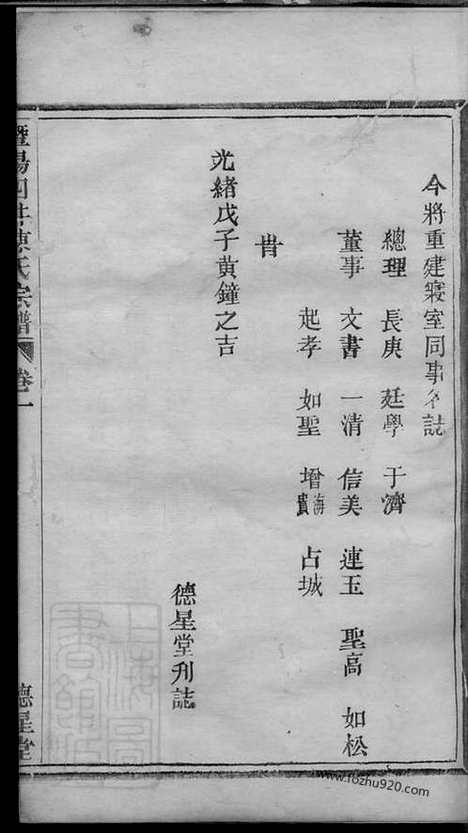 今將重建寢室同事名誌
總理 長庚 廷學 于濟
董事 文書 一清 信美 連玉 聖高 如松
起孝 如聖 增海 占城
旹
光緒戊子黃鐘之吉
德星堂刋誌
暨陽 陳氏宗譜 卷一 德星堂
上海圖書館藏
www.fozhu920.com